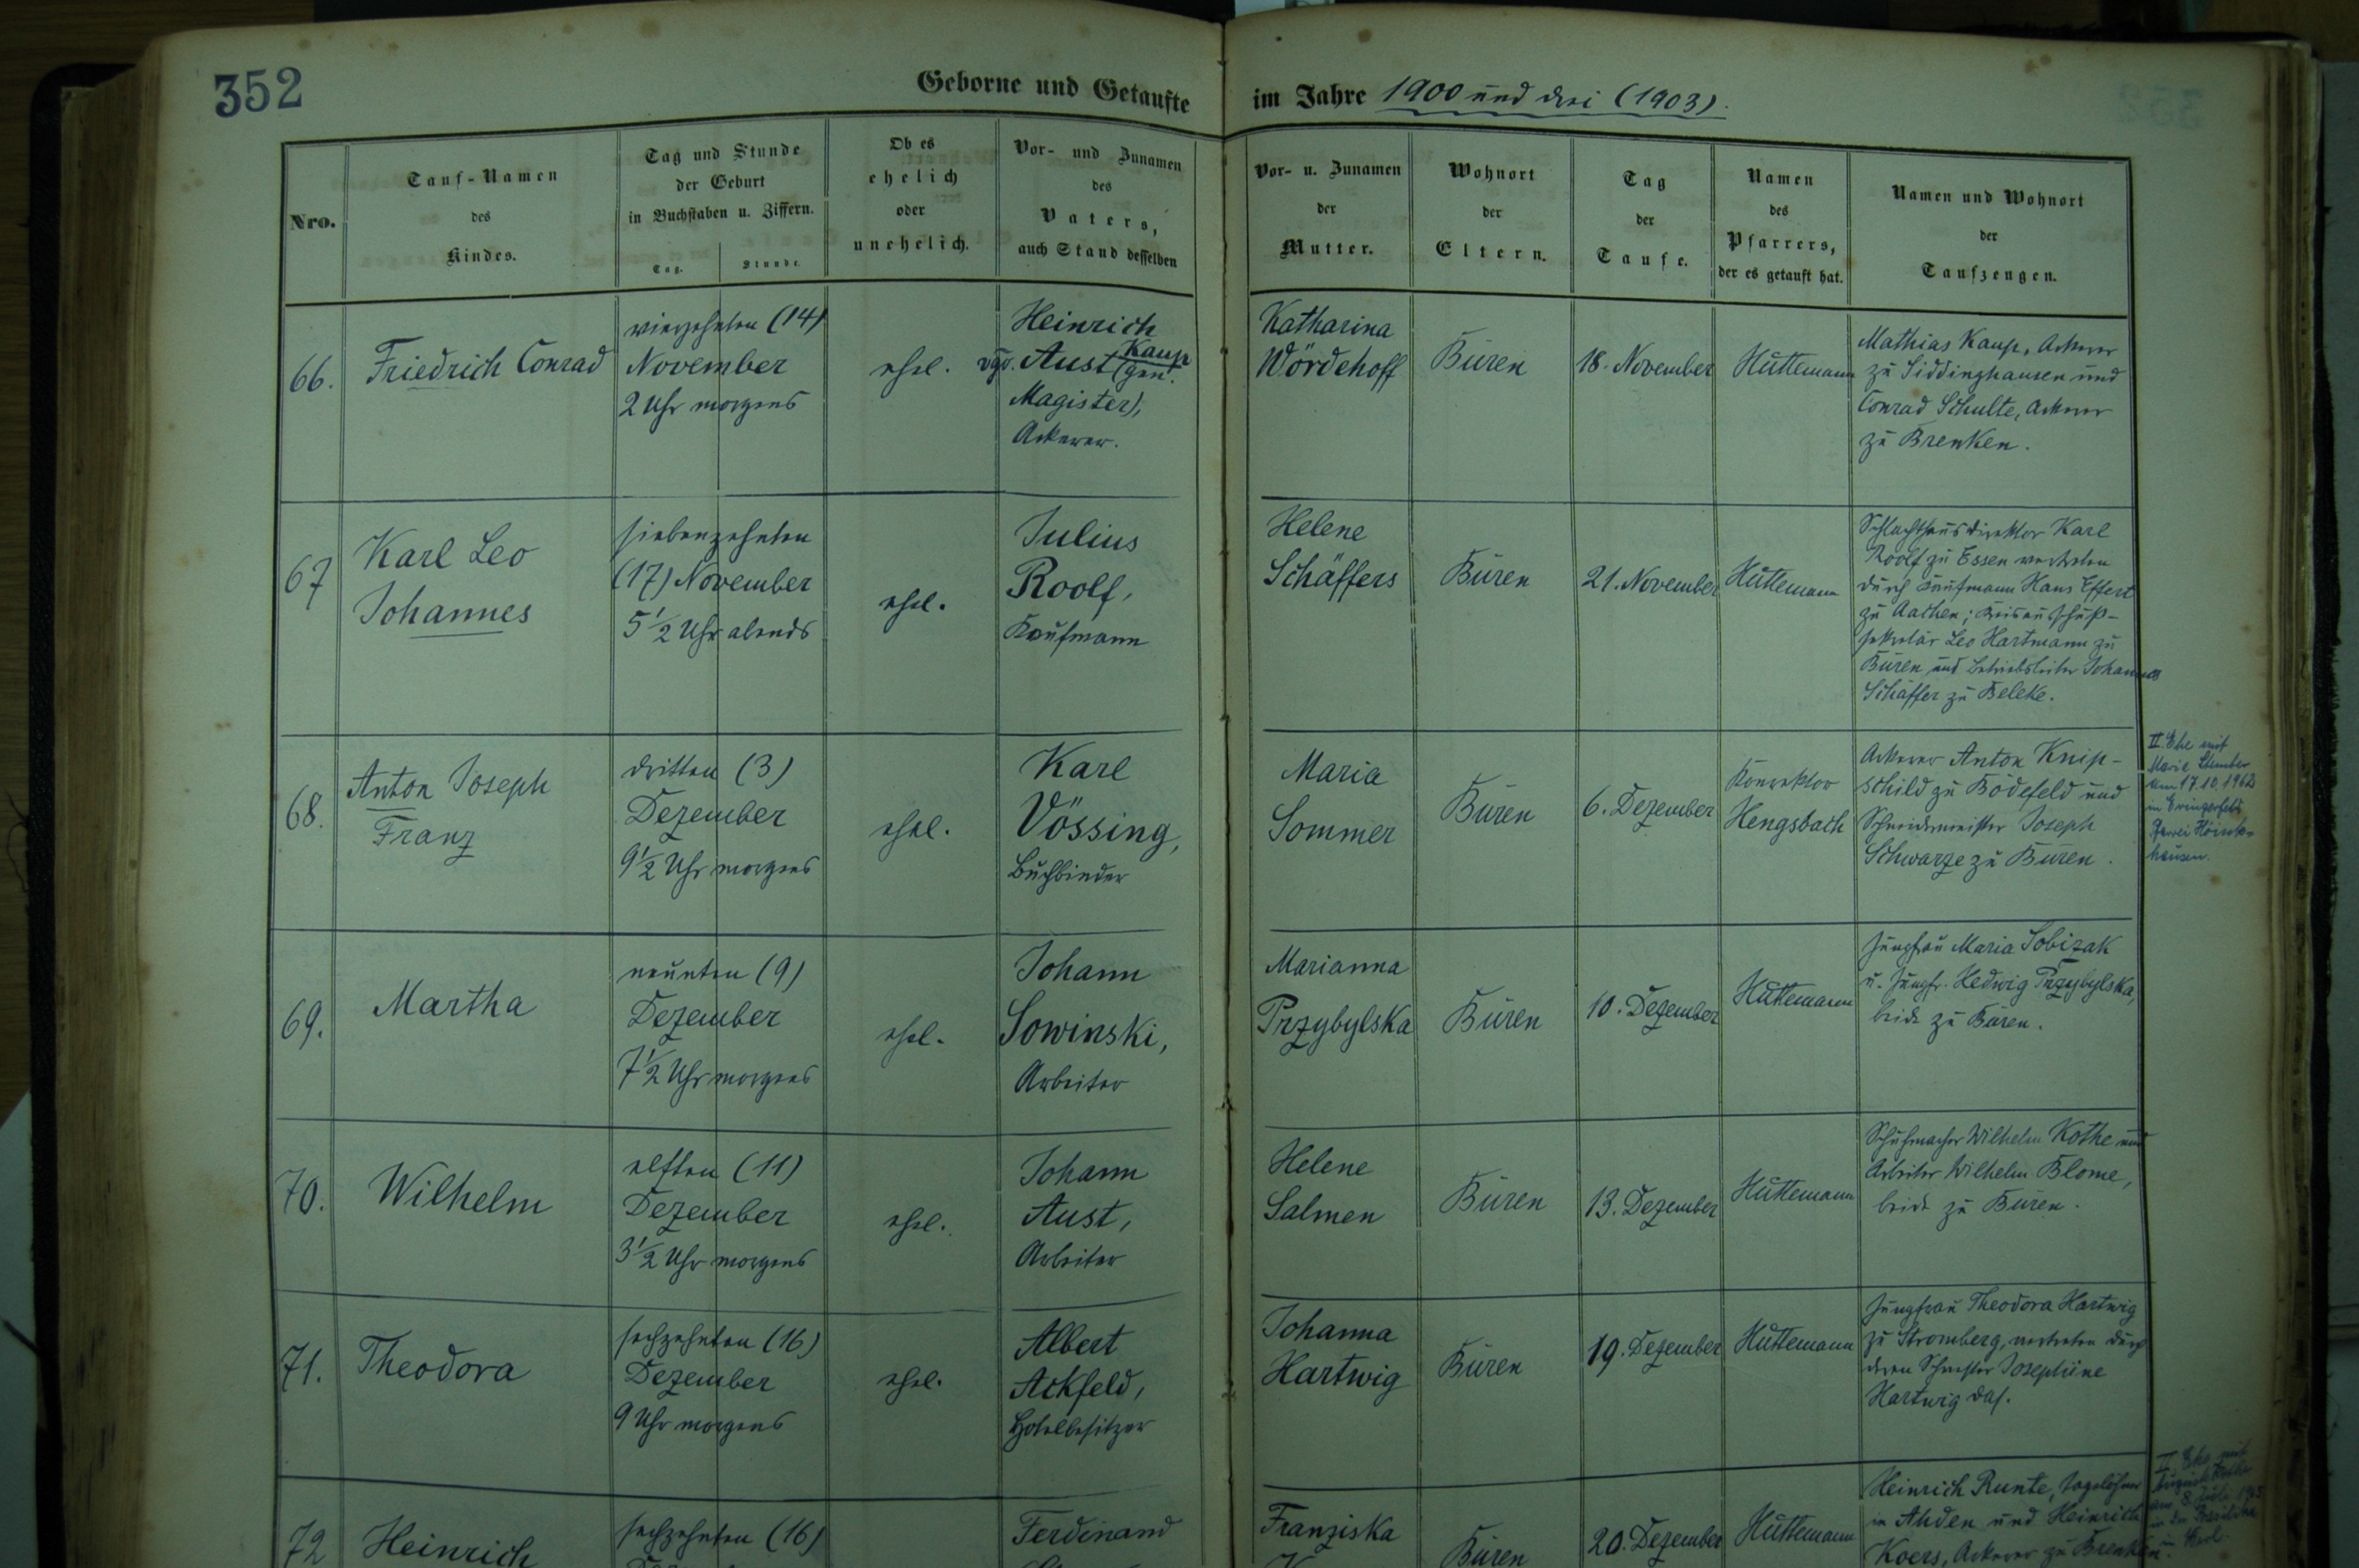 352
Geborne und Getaufte im Jahre 1900 und drei (1903).
Nro.
Tauf-Namen
des
Kindes.
Tag und Stunde
der Geburt
in Buchstaben u. Ziffern.
Tag. Stunde.
Ob es
ehelich
oder
unehelich.
Vor- und Zunamen
des
Vaters,
auch Stand desselben
Vor- u. Zunamen
der
Mutter.
Wohnort
der
Eltern.
Tag
der
Taufe.
Namen
des
Pfarrers,
der es getauft hat.
Namen und Wohnort
der
Taufzeugen.
66.
Friedrich Conrad
vierzehnten (14)
November
2 Uhr morgens
ehel.
Heinrich
Kaup
vgo. Aust (gen.
Magister),
Ackerer.
Katharina
Wördehoff
Büren
18. November
Hüttemann
Mathias Kaup, Ackerer
zu Siddinghausen und
Conrad Schulte, Ackerer
zu Brenken.
67
Karl Leo
Johannes
siebenzehnten
(17) November
5 1/2 Uhr abends
ehel.
Julius
Roolf,
Kaufmann
Helene
Schäffers
Büren
21. November
Hüttemann
Schlachthausdirektor Karl
Roolf zu Essen vertreten
durch Kaufmann Hans Effert
zu Aachen; Kreisausschuß-
sekretär Leo Hartmann zu
Büren und Betriebsleiter Johannes
Schäffer zu Beleke.
68.
Anton Joseph
Franz
dritten (3)
Dezember
9 1/2 Uhr morgens
ehel.
Karl
Vössing,
Buchbinder
Maria
Sommer
Büren
6. Dezember
Konrektor
Hengsbach
Ackerer Anton Knip-
schild zu Bödefeld und
Schneidermeister Joseph
Schwarze zu Büren.
II. Ehe mit
Marie
am 17.10.1962
in Eringerfeld
Pfarrei Hoink-
hausen.
69.
Martha
neunten (9)
Dezember
7 1/2 Uhr morgens
ehel.
Johann
Sowinski,
Arbeiter
Marianna
Przybylska
Büren
10. Dezember
Hüttemann
Jungfrau Maria Sobizak
u. Jungfr. Hedwig Przybylska,
beide zu Büren.
70.
Wilhelm
elften (11)
Dezember
3 1/2 Uhr morgens
ehel.
Johann
Aust,
Arbeiter
Helene
Salmen
Büren
13. Dezember
Hüttemann
Schuhmacher Wilhelm Kothe und
Arbeiter Wilhelm Blome,
beide zu Büren.
71.
Theodora
sechzehnten (16)
Dezember
9 Uhr morgens
ehel.
Albert
Ackfeld,
Hotelbesitzer
Johanna
Hartwig
Büren
19. Dezember
Hüttemann
Jungfrau Theodora Hartwig
zu Stromberg, vertreten durch
deren Schwester Josephine
Hartwig das.
72
Heinrich
sechzehnten (16)
Ferdinand
Franziska
Büren
20. Dezember
Hüttemann
Heinrich Runte, Tagelöhner
in Ahden und Heinrich
Koers, Ackerer zu Brenken
II. Ehe mit
am 8. Juli
in der Basilika
Werl.